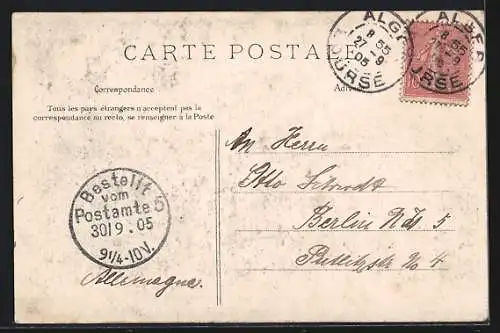 ALGER
8 55
27 - 9
05
BOURSE
ALGER
8 55
9
BOURSE
10
CARTE POSTALE
Correspondance
Tous les pays étrangers n'acceptent pas la
correspondance au recto, se renseigner à la Poste
An Herrn
Otto
Berlin 5
No 4
Bestellt
vom
Postamte 5
30/9.05
9 1/4-10V.
Allemagne.